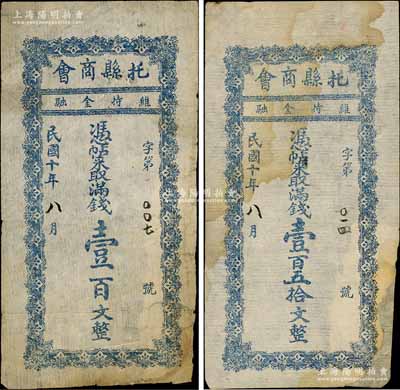 上海陽明拍賣
www.yangmingauction.com
會商縣托
融金恃維
字第 〇〇七 號
憑帖來取滿錢壹百文整
民國十年八月
會商縣托
融金恃維
字第 〇一四 號
憑帖來取滿錢壹百五拾文整
民國十年八月